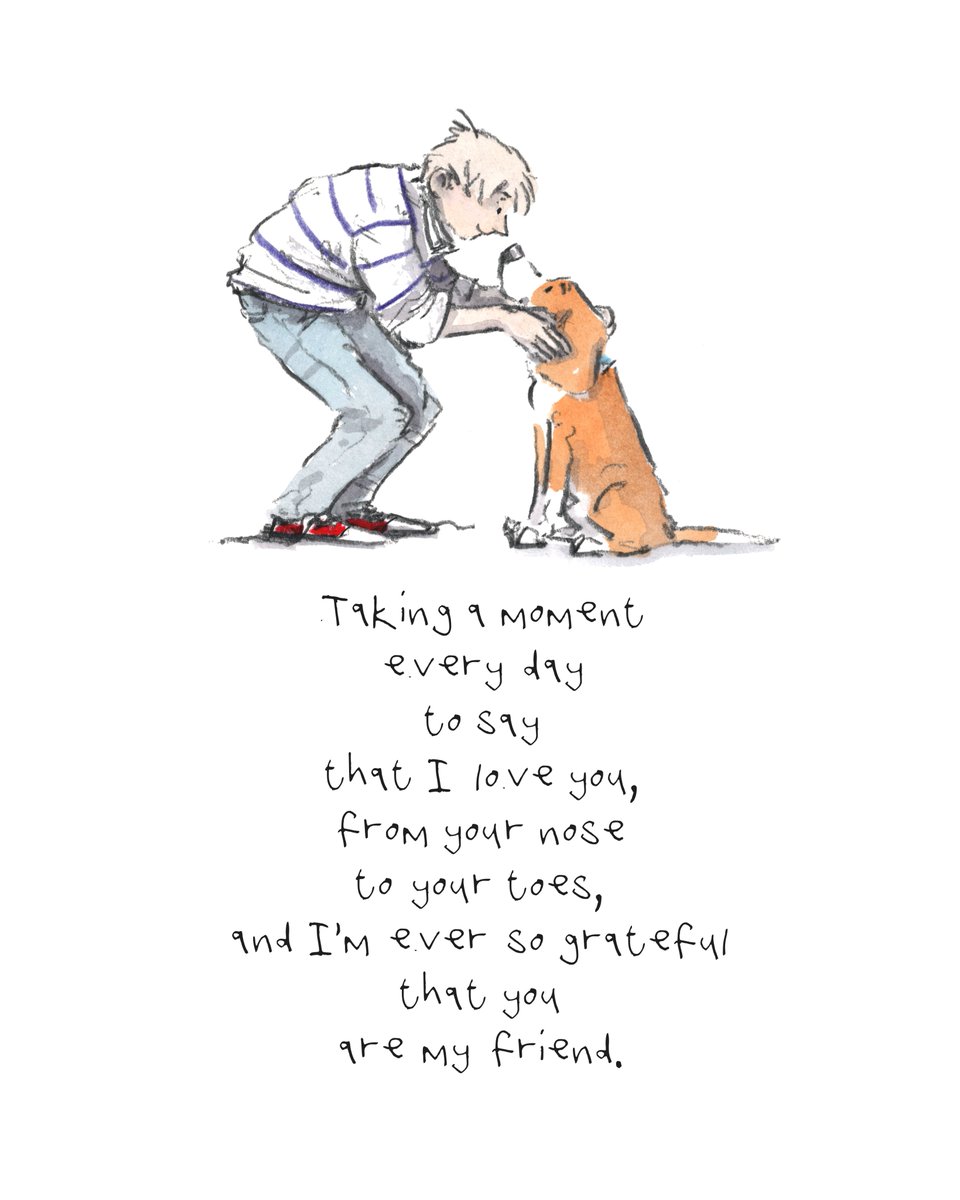 Taking a moment
every day
to say
that I love you,
from your nose
to your toes,
and I'm ever so grateful
that you
are my friend.